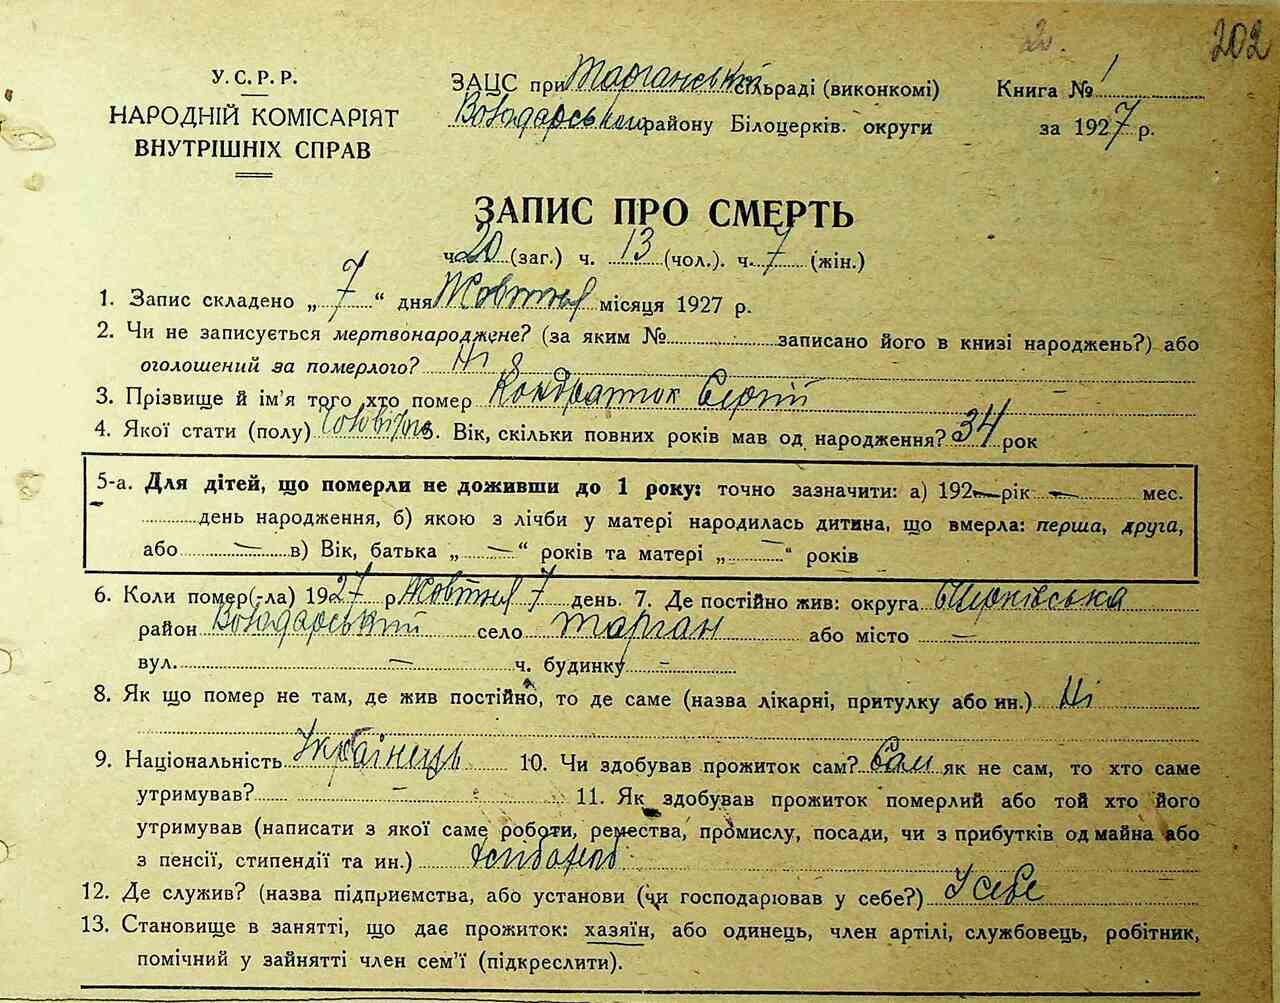 2. 202
У.С.Р.Р.
НАРОДНІЙ КОМІСАРІЯТ
ВНУТРІШНІХ СПРАВ
ЗАЦС при Тарганській сільраді (виконкомі)
Володарського району Білоцерків. округи
Книга № 1
за 1927 р.
ЗАПИС ПРО СМЕРТЬ
ч. 20 (заг.) ч. 13 (чол.). ч. 7 (жін.)
1. Запис складено „ 7 “ дня Жовтня місяця 1927 р.
2. Чи не записується мертвонароджене? (за яким № записано його в книзі народжень?) або
оголошений за померлого? Ні
3. Прізвище й ім'я того хто помер Кондратюк Сергій
4. Якої стати (полу) чоловіч. 5. Вік, скільки повних років мав од народження? 34 рок
5-а. Для дітей, що померли не доживши до 1 року: точно зазначити: а) 192 — рік — мес.
день народження, б) якою з лічби у матері народилась дитина, що вмерла: перша, друга,
або — в) Вік, батька „ — “ років та матері „ — “ років
6. Коли помер(-ла) 1927 р Жовтня 7 день. 7. Де постійно жив: округа Б/Церківська
район Володарський село Тарган або місто —
вул. — ч. будинку —
8. Як що помер не там, де жив постійно, то де саме (назва лікарні, притулку або ин.) Ні
9. Національність Українець 10. Чи здобував прожиток сам? Сам як не сам, то хто саме
утримував? — 11. Як здобував прожиток померлий або той хто його
утримував (написати з якої саме роботи, ремества, промислу, посади, чи з прибутків од майна або
з пенсії, стипендії та ин.) хлібороб
12. Де служив? (назва підприємства, або установи (чи господарював у себе?) У себе
13. Становище в занятті, що дає прожиток: хазяїн, або одинець, член артілі, службовець, робітник,
помічний у зайнятті член сем'ї (підкреслити).